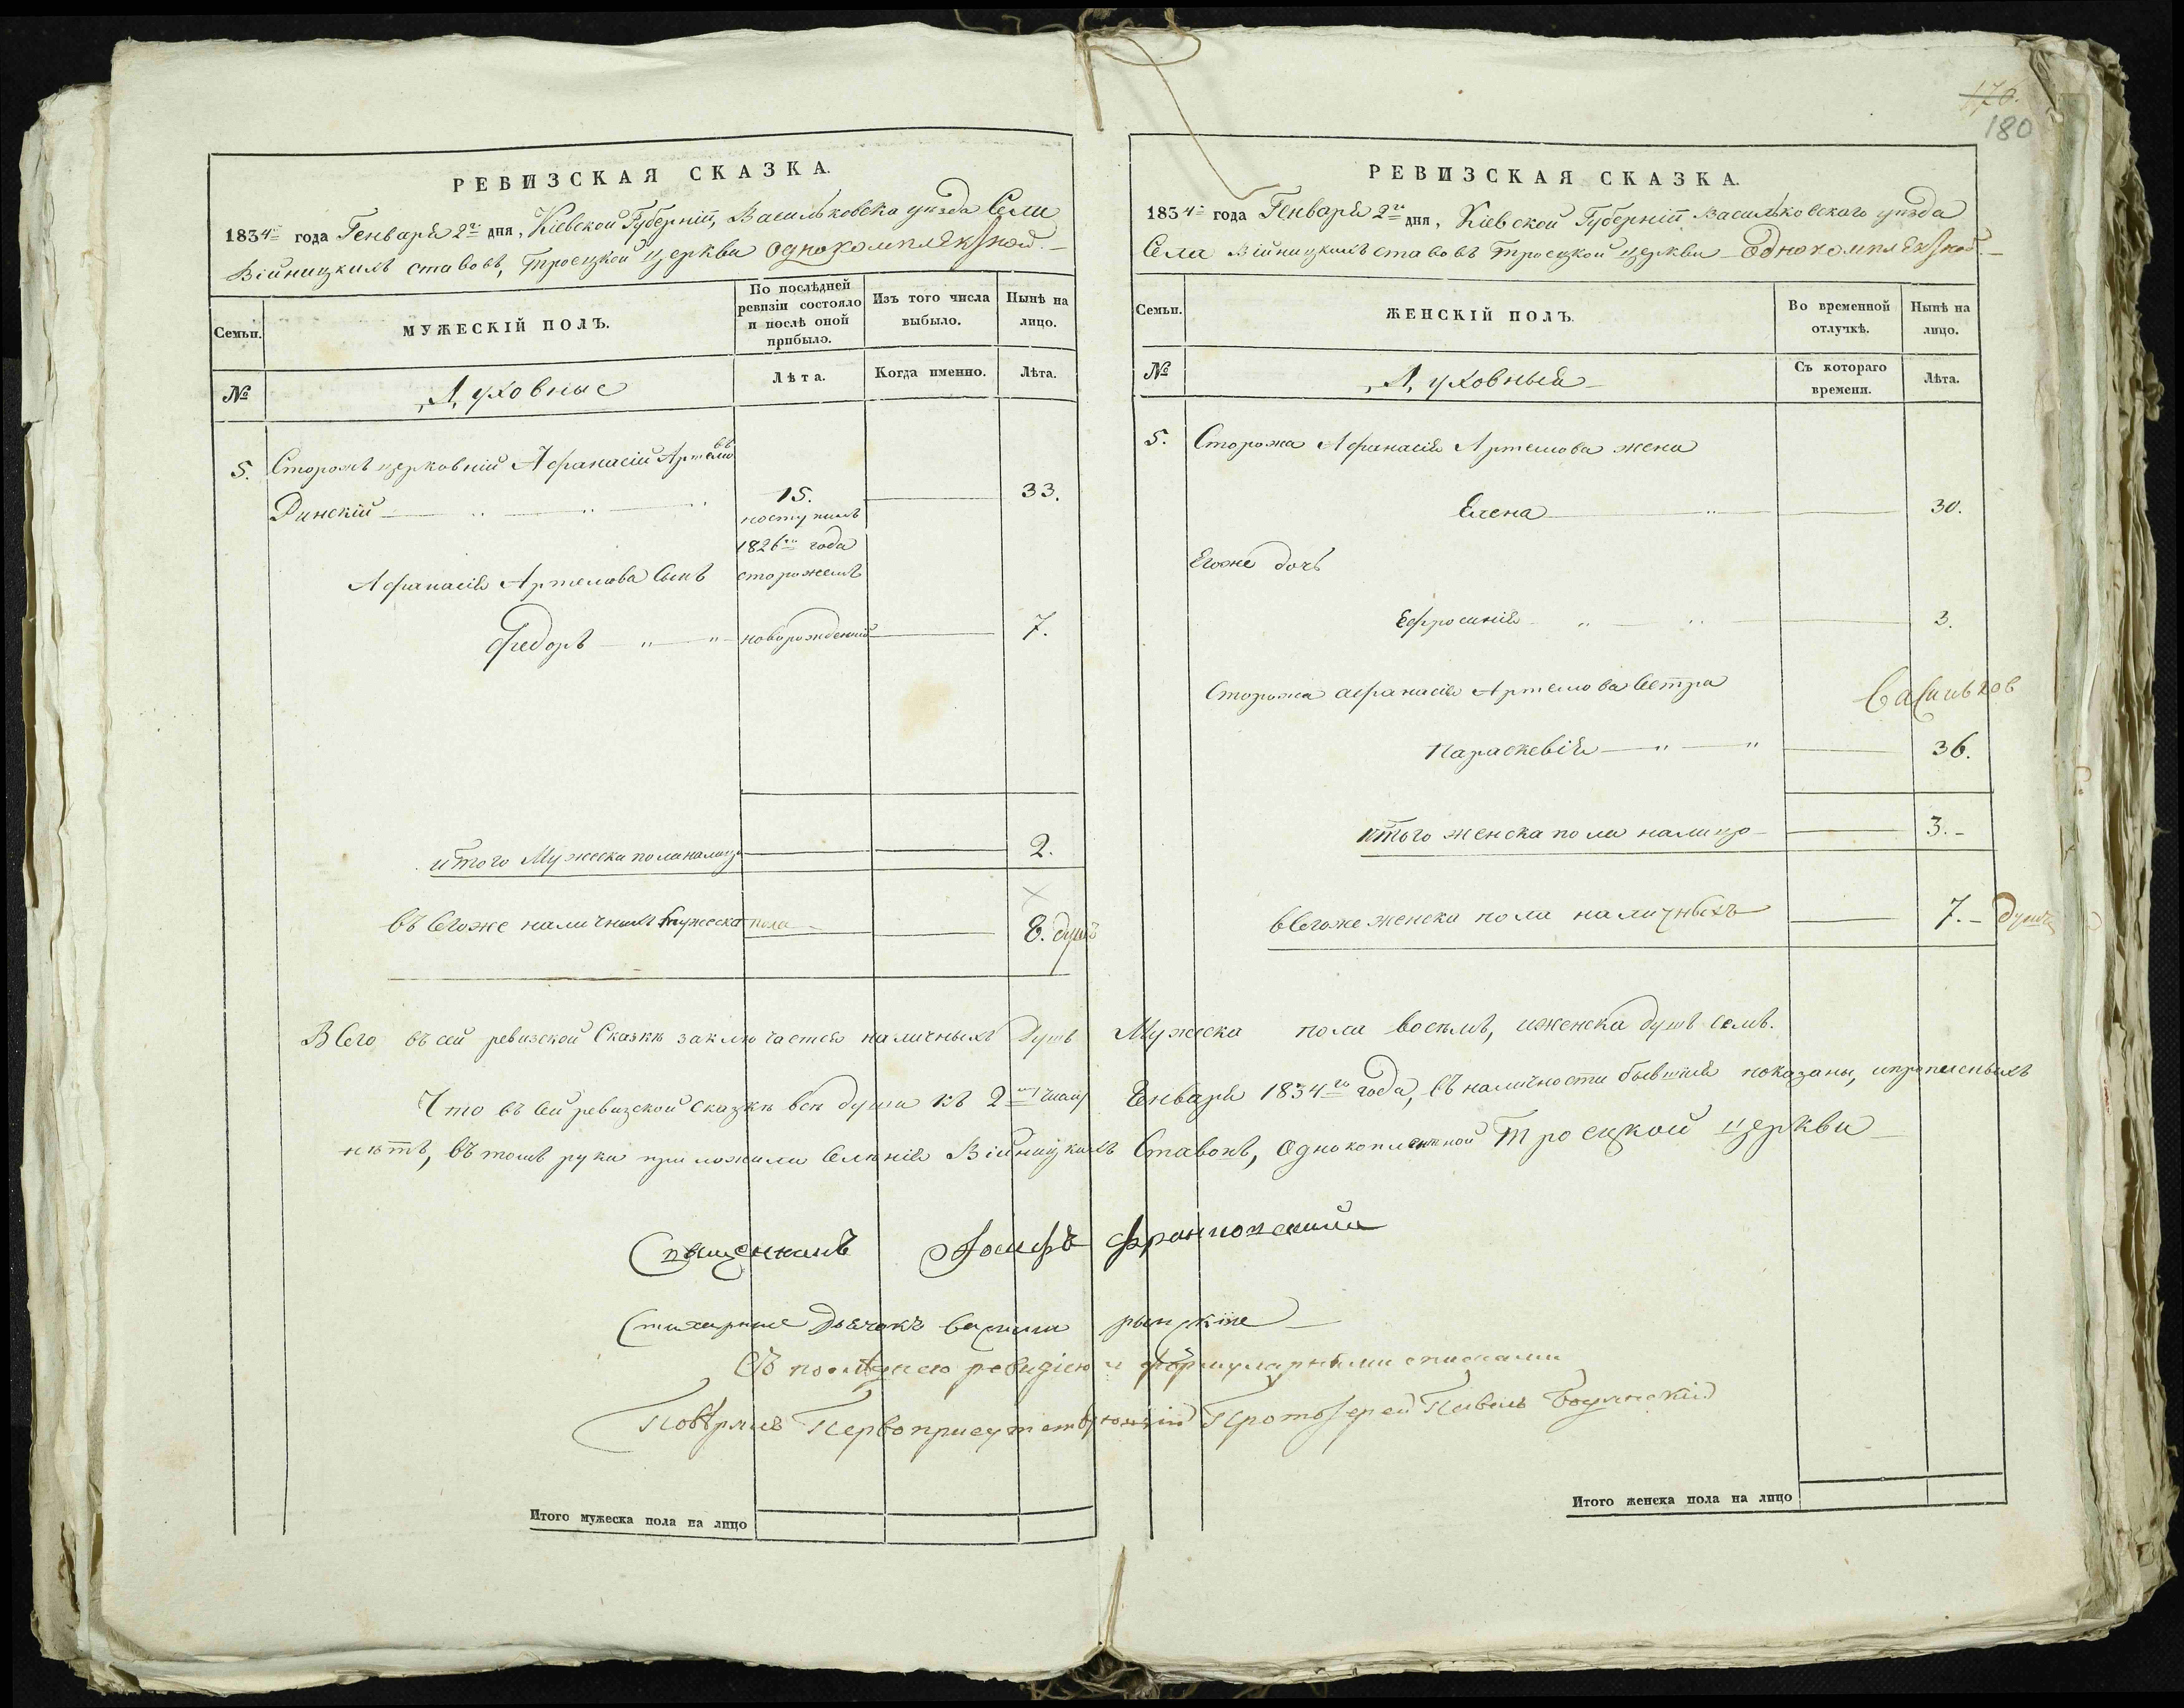 176.
180
РЕВИЗСКАЯ СКАЗКА.
1834го года Генваря 2го дня, Кіевской Губерніи, Васильковска уезда Села
Війницкихъ ставовъ, Троецкой церкви однокомплектной.
Семьи.
МУЖЕСКІЙ ПОЛЪ.
По послѣдней ревизіи состояло и послѣ оной прибыло.
Изъ того числа выбыло.
Нынѣ на лицо.
№
Духовные
Лѣта.
Когда именно.
Лѣта.
5. Сторожъ церковній Афанасій Артемовъ
Динскій 15. 33.
поступилъ
1826го года
Афанасія Артемова Сынъ сторожемъ
Федоръ новорожденній 7.
итого Мужеска пола налицо 2.
въ Сегоже наличныхъ Мужеска пола 8. душъ
РЕВИЗСКАЯ СКАЗКА.
1834го года Генваря 2го дня, Кіевской Губерніи Васильковскаго уезда
Села Війницкихъ ставовъ Троецкой церкви однокомплектной.
Семьи.
ЖЕНСКІЙ ПОЛЪ.
Во временной отлучкѣ.
Нынѣ на лицо.
№
Духовныя
Съ котораго времени.
Лѣта.
5. Сторожа Афанасія Артемова жена
Елена 30.
Егоже дочь
Ефросинія 3.
Сторожа афанасія Артемова Сетра
Параскевія 36.
итого женска пола налицо 3.
всегоже женска пола наличныхъ 7. душъ
ВСего въ сей ревизской Сказкѣ заключается наличныхъ душъ Мужеска пола восемь, иженска душъ семь.
Что въ Сей ревизской сказкѣ всѣ души къ 2му числу Енваря 1834го года, въ наличности бывшія показаны, ипрописныхъ
нѣтъ, въ томъ руки приложили Селѣнія Війницкихъ Ставовъ, Однокоплектной Троецкой церкви
Священникъ Іосифъ
Стихарные Дьячокъ
Съ послѣднею ревизіею и формулярными списками
Повѣрялъ Первоприсутствующій Протоіерей Павелъ
Итого мужеска пола на лицо
Итого женска пола на лицо